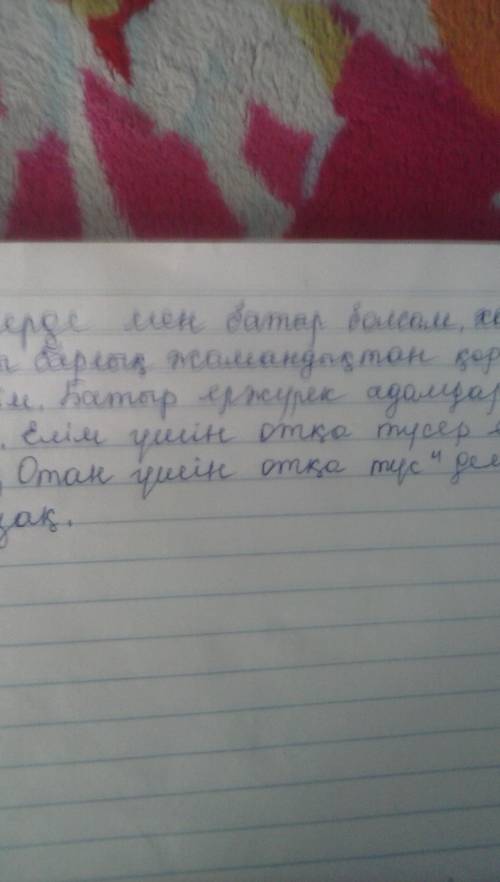 ерде мен батыр болсам, ха
барлық жамандықтан қор
ім. Батыр ержүрек адамдар
. Елім үшін отқа түсер е
, Отан үшін отқа түс" деп
зақ.